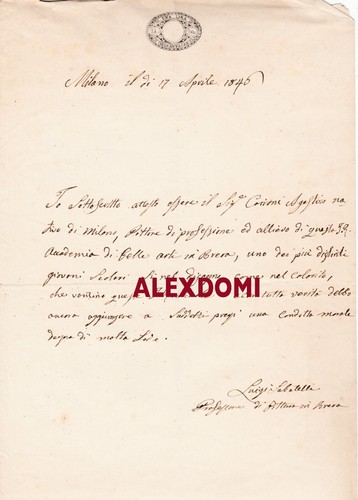 Milano il di 17 Aprile 1846
Io Sottoscritto attesto essere il Sigr Agostino na
tivo di Milano, Pittore di professione ed allievo di questa I. R.
Accademia di belle arti in Brera, uno dei più distinti
giovani Scolari Sì nel Disegno, come nel Colorito,
che vantino tutta verità debbo
ancora aggiungere a Suddetti pregi una Condotta morale
degna di molta Lode.
ALEXDOMI
Luigi Sabatelli
Professore di Pittura in Brera